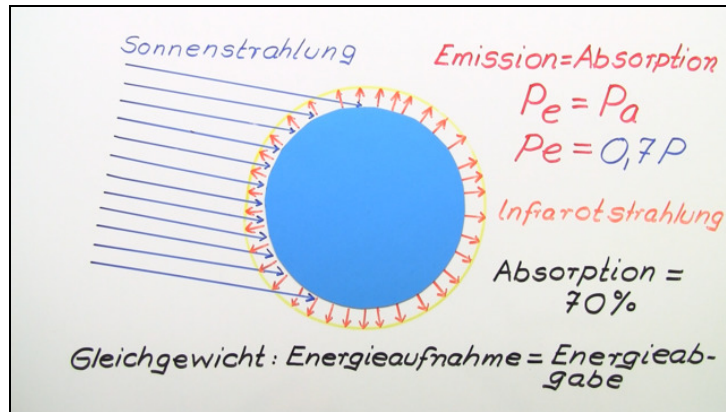 Sonnenstrahlung
Emission=Absorption
Pe = Pa
Pe = 0,7P
Infrarotstrahlung
Absorption =
70%
Gleichgewicht: Energieaufnahme = Energieab-
gabe